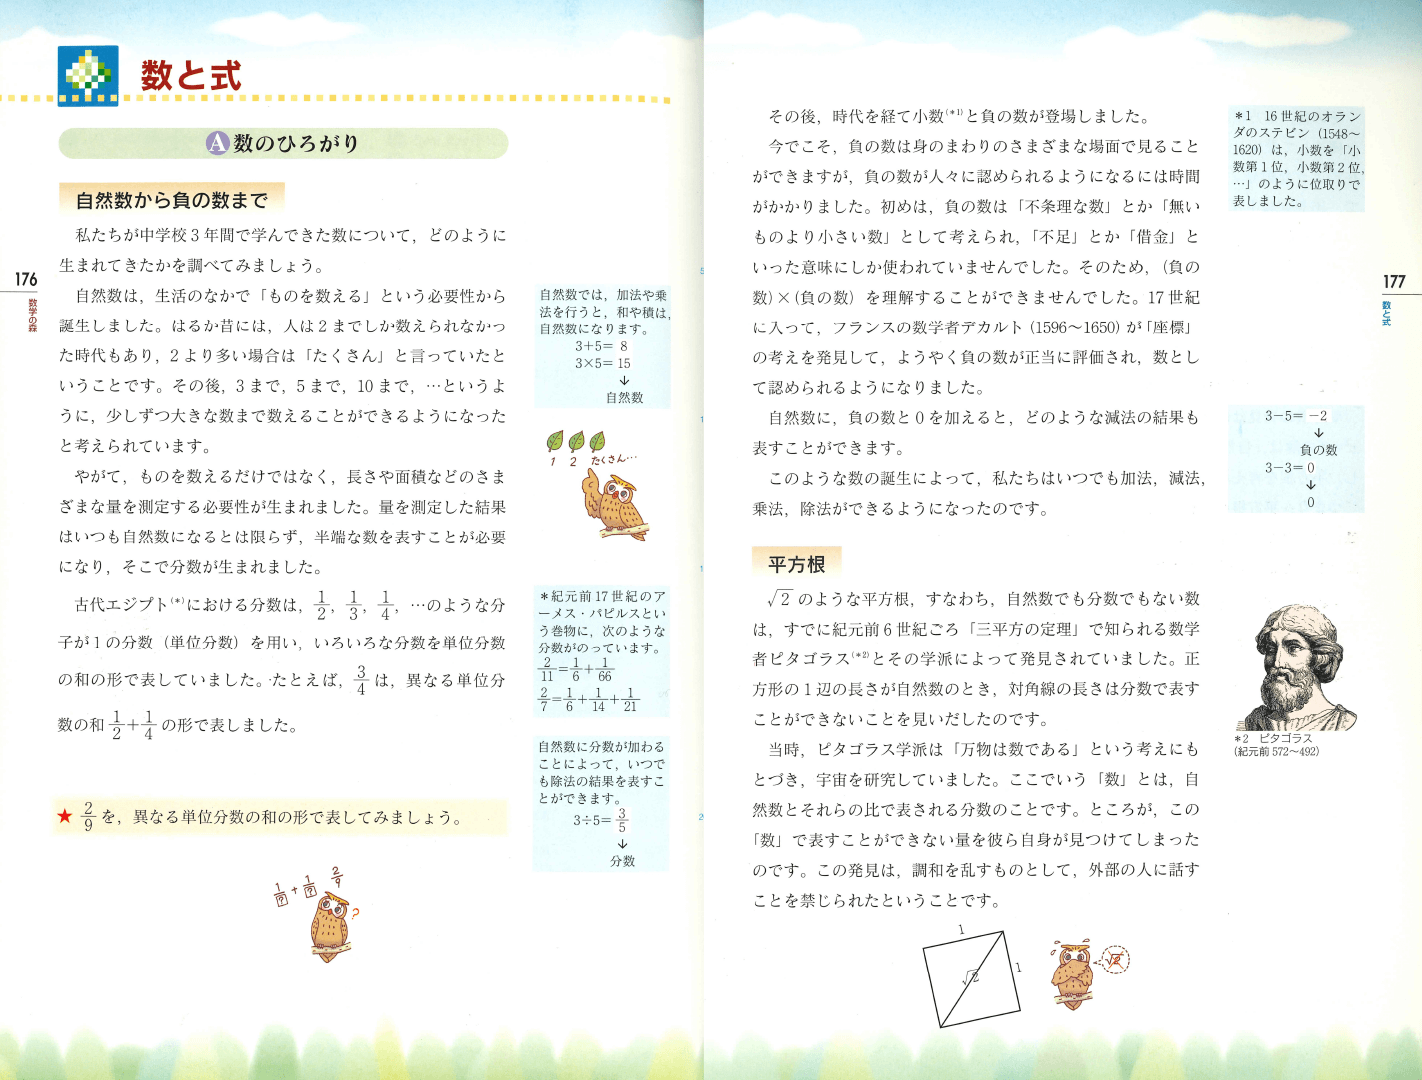 数と式
A 数のひろがり
自然数から負の数まで
私たちが中学校3年間で学んできた数について，どのように
生まれてきたかを調べてみましょう。
自然数は，生活のなかで「ものを数える」という必要性から
誕生しました。はるか昔には，人は2までしか数えられなかっ
た時代もあり，2より多い場合は「たくさん」と言っていたと
いうことです。その後，3まで，5まで，10まで，…というよ
うに，少しずつ大きな数まで数えることができるようになった
と考えられています。
やがて，ものを数えるだけではなく，長さや面積などのさま
ざまな量を測定する必要性が生まれました。量を測定した結果
はいつも自然数になるとは限らず，半端な数を表すことが必要
になり，そこで分数が生まれました。
古代エジプト(*)における分数は，1/2，1/3，1/4，…のような分
子が1の分数（単位分数）を用い，いろいろな分数を単位分数
の和の形で表していました。たとえば，3/4は，異なる単位分
数の和1/2+1/4の形で表しました。
★ 2/9を，異なる単位分数の和の形で表してみましょう。
1/? + 1/? 2/9
?
176
数学の森
自然数では，加法や乗
法を行うと，和や積は，
自然数になります。
3+5= 8
3×5= 15
↓
自然数
1 2 たくさん…
*紀元前17世紀のア
ーメス・パピルスとい
う巻物に，次のような
分数がのっています。
2/11=1/6+1/66
2/7=1/6+1/14+1/21
自然数に分数が加わる
ことによって，いつで
も除法の結果を表すこ
とができます。
3÷5= 3/5
↓
分数
その後，時代を経て小数(*1)と負の数が登場しました。
今でこそ，負の数は身のまわりのさまざまな場面で見ること
ができますが，負の数が人々に認められるようになるには時間
がかかりました。初めは，負の数は「不条理な数」とか「無い
ものより小さい数」として考えられ，「不足」とか「借金」と
いった意味にしか使われていませんでした。そのため，(負の
数)×(負の数）を理解することができませんでした。17世紀
に入って，フランスの数学者デカルト（1596～1650）が「座標」
の考えを発見して，ようやく負の数が正当に評価され，数とし
て認められるようになりました。
自然数に，負の数と0を加えると，どのような減法の結果も
表すことができます。
このような数の誕生によって，私たちはいつでも加法，減法，
乗法，除法ができるようになったのです。
平方根
√2 のような平方根，すなわち，自然数でも分数でもない数
は，すでに紀元前6世紀ごろ「三平方の定理」で知られる数学
者ピタゴラス(*2)とその学派によって発見されていました。正
方形の1辺の長さが自然数のとき，対角線の長さは分数で表す
ことができないことを見いだしたのです。
当時，ピタゴラス学派は「万物は数である」という考えにも
とづき，宇宙を研究していました。ここでいう「数」とは，自
然数とそれらの比で表される分数のことです。ところが，この
「数」で表すことができない量を彼ら自身が見つけてしまった
のです。この発見は，調和を乱すものとして，外部の人に話す
ことを禁じられたということです。
1
1
√2
√2
*1 16世紀のオラン
ダのステビン（1548～
1620）は，小数を「小
数第1位，小数第2位，
…」のように位取りで
表しました。
177
数と式
3−5= −2
↓
負の数
3−3= 0
↓
0
*2 ピタゴラス
(紀元前572～492)